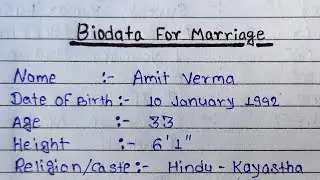 Biodata For Marriage
Name :- Amit Verma
Date of Birth :- 10 January 1992
Age :- 33
Height :- 6'1"
Religion/Caste :- Hindu - Kayastha